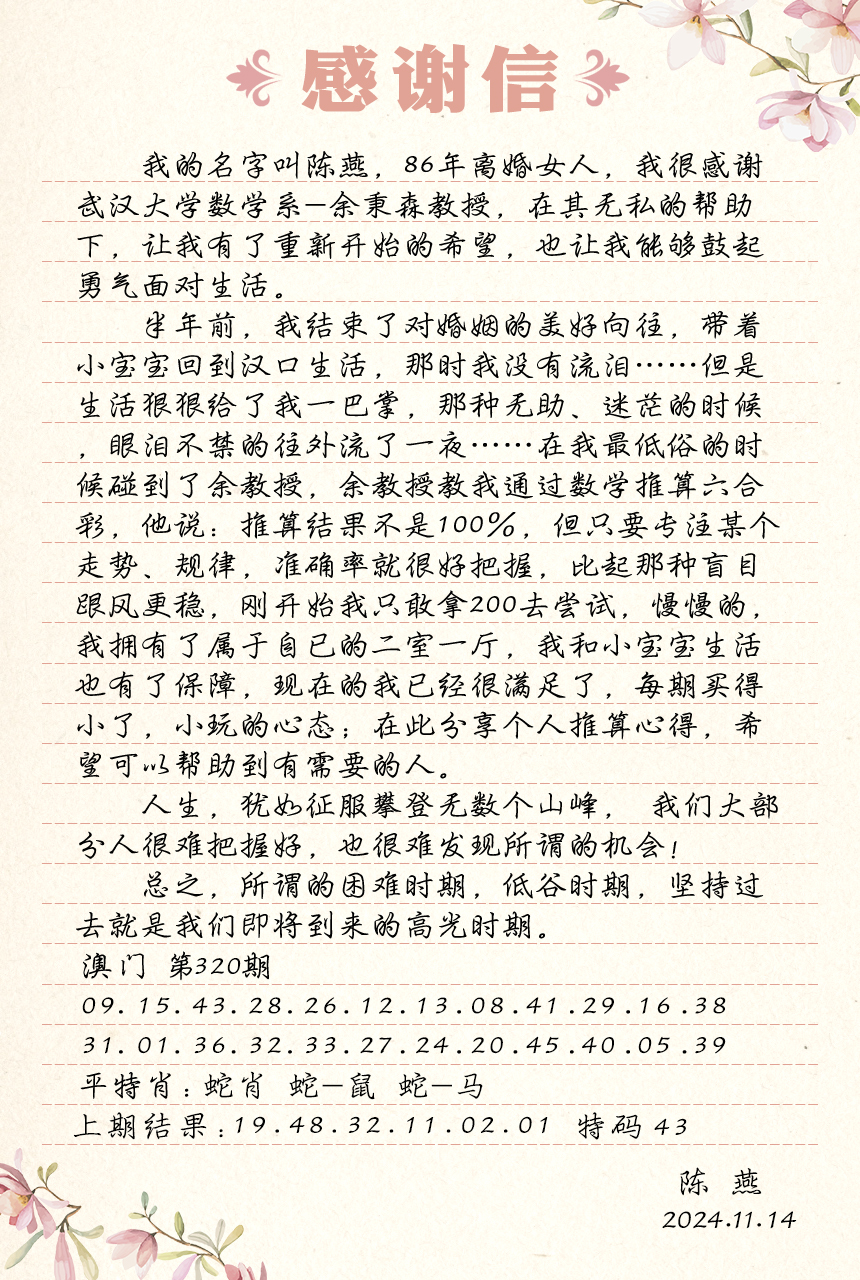 感谢信
我的名字叫陈燕，86年离婚女人，我很感谢
武汉大学数学系—余秉森教授，在其无私的帮助
下，让我有了重新开始的希望，也让我能够鼓起
勇气面对生活。
半年前，我结束了对婚姻的美好向往，带着
小宝宝回到汉口生活，那时我没有流泪……但是
生活狠狠给了我一巴掌，那种无助、迷茫的时候
，眼泪不禁的往外流了一夜……在我最低俗的时
候碰到了余教授，余教授教我通过数学推算六合
彩，他说：推算结果不是100%，但只要专注某个
走势、规律，准确率就很好把握，比起那种盲目
跟风更稳，刚开始我只敢拿200去尝试，慢慢的，
我拥有了属于自已的二室一厅，我和小宝宝生活
也有了保障，现在的我已经很满足了，每期买得
小了，小玩的心态；在此分享个人推算心得，希
望可以帮助到有需要的人。
人生，犹如征服攀登无数个山峰， 我们大部
分人很难把握好，也很难发现所谓的机会！
总之，所谓的困难时期，低谷时期，坚持过
去就是我们即将到来的高光时期。
澳门 第320期
09.15.43.28.26.12.13.08.41.29.16.38
31.01.36.32.33.27.24.20.45.40.05.39
平特肖：蛇肖 蛇—鼠 蛇—马
上期结果：19.48.32.11.02.01 特码 43
陈 燕
2024.11.14